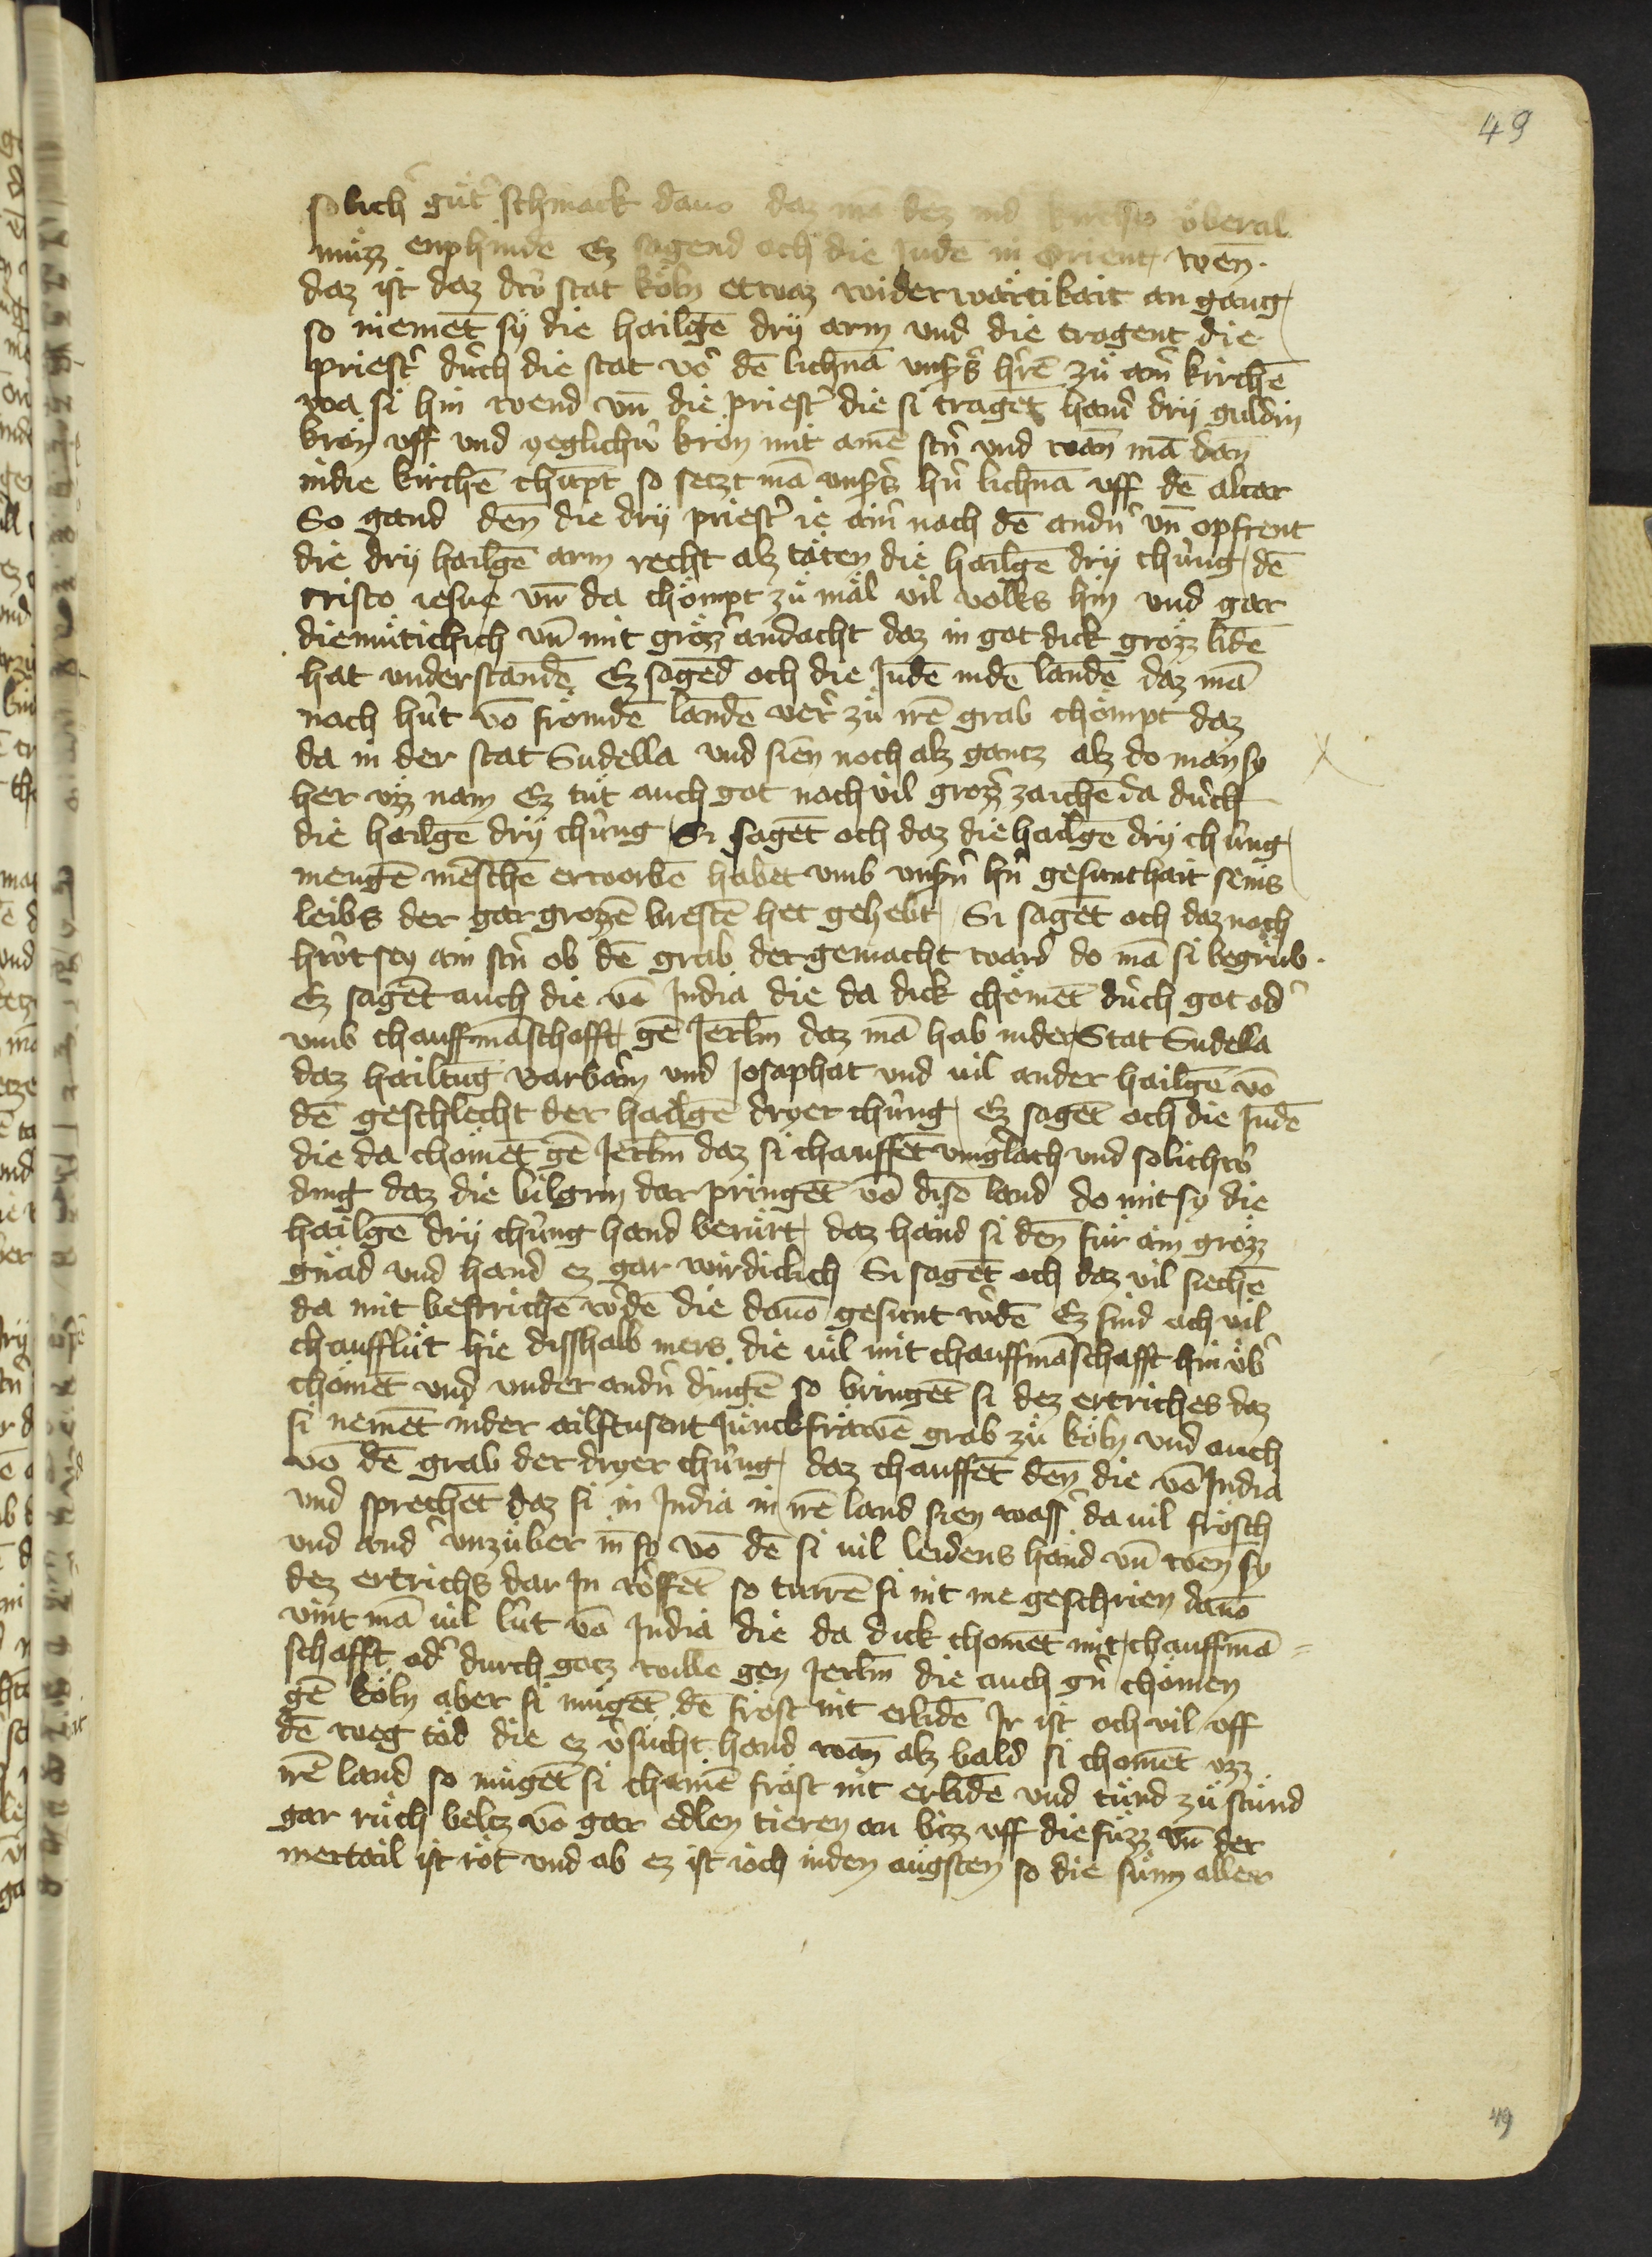 49
solich' gůt' schmack dauo daz mā dez ind' kirchē v̈beral
můzz enphindē Ez sagend och die Judē in Orient wen̄
daz ist daz drv̈ stat köln etwaz widerwärtikait an gang
so niemēt sÿ die hailgē drÿ arm vnd die tragent die
priest' durch die stat vō dē lichnā vnsers h'rē zů ain' kirchē
wa si hin wend vn̄ die priest' die si tragēt hand drÿ guldin
kron vff vnd yeglichv̈ kron mit amē stn̄ vnd wan̄ mā dan̄
indie kirchē chūpt so setzt mā vnsers hn̄ lichnā vff dē altar
So gand den̄ die drÿ priest' ie ain' nach dē andn̄ vn̄ opfrent
die drÿ hailgē arm recht alz täten die hailgē drÿ chüng dē
cristo iesue vn̄ da chömpt zů mäl vil volks hin vnd gar
diemüticlich vn̄ mit grozz' andacht daz in got dick grozz lidē
hat vnderstandē Ez sagēd och die Judē indē landē daz mā
nach hüt vō frömdē landē verr zů irē grab chömpt daz
da in der stat Sudella vnd sien noch alz gantz alz do man sy
her vz nam Ez tůt auch got noch vil grozz' zaichē da durch
die hailgē drÿ chüng Si sagēt och daz die hailgē drÿ chüng
mengē mēschē erworbē habet vmb vnsern hn̄ gesunthait seins
leibs der gar grozzē brestē het gehebt Si sagēt och daz noch
hüt sey ain stn̄ ob dē grab der gemacht ward do mā si begrůb
Ez sagēt auch die vō India die da dick chömēt durch got od'
vmb chauffmāschafft gē Jerlm̄ daz mā hab inder Stat Sudella
daz hailtūg Barbäm vnd Josaphat vnd vil ander hailgē vō
dē geschlecht der hailgē dryer chüng Ez sagēt och die Judē
die da chömēt gē Jerlm̄ daz si chauffēt vingl'ach vnd solichv̈
ding daz die bilgrin dar pringēt vō disē land do mit sy die
hailgē drÿ chüng hand berürt daz hand si den̄ für ain grozz
gnäd vnd hand ez gar wirdiclich Si sagēt och daz vil siechē
da mit bestrichē w'dē die dauō gesunt w'dē Ez sind och vil
chaufflüt hie disshalb mers die vil mit chauffmāschafft hin v̈b'
chömēt vnd vnder andn̄ dingē so bringēt si dez ertriches daz
si nemēt inder ailftusent Junckfräwē grab zů köln vnd auch
vō dē grab der dryer chüng daz chauffēt den̄ die vō India
vnd sprechēt daz si in India in irē land sien wass' da vil frösch
vnd and' vnzüber in̄ sy vō dē si vil leidens hand vn̄ wen̄ sy
dez ertrichs dar In w'ffēt so turrē si nit me geschrien dauō
vint mā vil lüt vō India die da dick chomēt mit chauffmā=
schafft od' durch gotz wille gen Jerlm̄ die auch gn̄ chömen
gē köln aber si mügēt dē frost nit erlidē Ir ist och vil vff
dē weg töd die ez v'sücht hand wan̄ alz bald si chomēt vzz
irē land so mügēt si chainē fröst nit erlidē vnd tůnd zů stund
gar ruch beltz vō gar edlen tieren an bizz vff die füzz vn̄ der
mertail ist röt vnd ob ez ist ioch inden augsten so die sunn aller
49